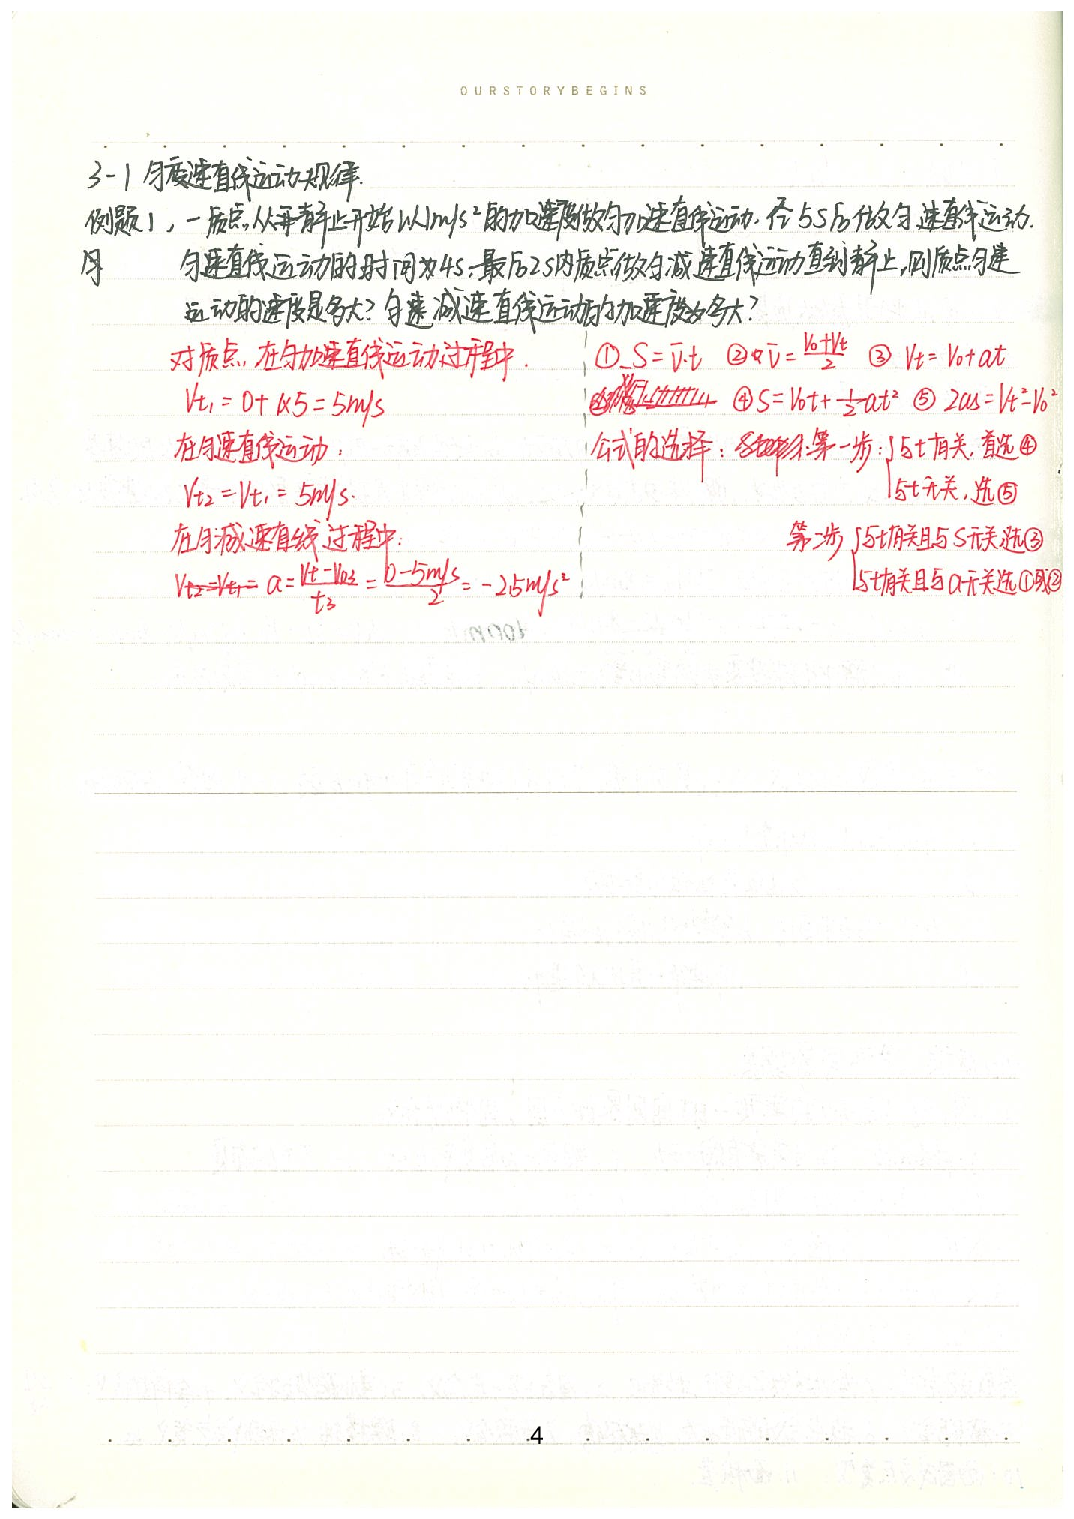 OURSTORYBEGINS
3-1 匀变速直线运动规律.
例题1, 一质点从静止开始以1m/s²的加速度做匀加速直线运动.经5S后做匀速直线运动.
匀速直线运动的时间为4s,最后2s内质点做匀减速直线运动直到静止,则质点匀速
运动的速度是多大?匀速减速直线运动的加速度多大?
对质点,在匀加速直线运动过程中.
Vt₁=0+1×5=5m/s
在匀速直线运动:
Vt₂=Vt₁=5m/s.
在匀减速直线过程中:
a=(Vt-V03)/t3=(0-5m/s)/2=-2.5m/s²
① S=v̄·t ② v̄=(V0+Vt)/2 ③ Vt=V0+at
④ S=V0t+1/2at² ⑤ 2as=Vt²-V0²
公式的选择: 第一步:{与t有关,首选④
与t无关,选⑤
第二步{与t有关且与S无关选③
与t有关且与a无关选①或②
4